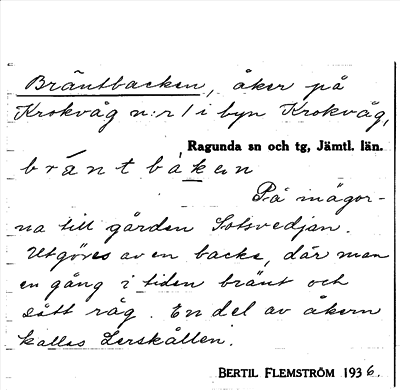 Bräntbacken, åker på
Krokvåg n:r 1 i byn Krokvåg,
Ragunda sn och tg, Jämtl. län.
brä́ntbàken
På inägor-
na till gården Sotsvedjan.
Utgöres av en backe, där man
en gång i tiden bränt och
sått råg. En del av åkern
kallas Lerskallen.
BERTIL FLEMSTRÖM 1936.